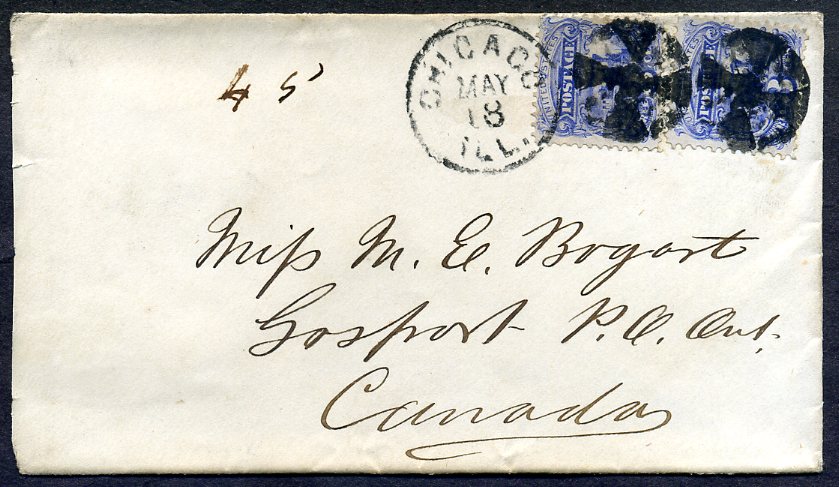 4 5
CHICAGO
MAY
18
ILL.
POSTAGE
POSTAGE
Miss M. E. Bogart
Gosport P.O. Ont.
Canada